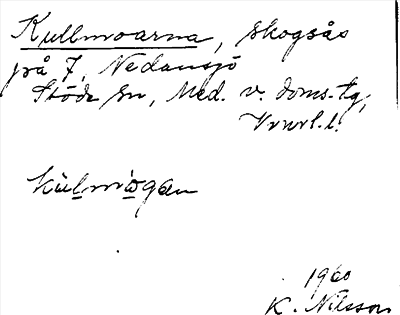 Kullmoarna, skogsås
på 7, Nedansjö
Stöde sn, Med. v. doms. tg,
Vnrl. l.
kùlmògan
1960
K. Nilsson